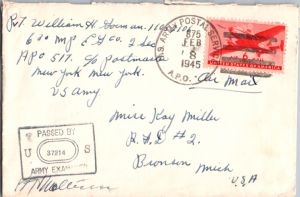 Pvt William H. Forman
630 M P E G Co. 2 Sec
APO 517 c/o Postmaster
New York New York.
US Army
U.S. ARMY POSTAL SERVICE
875
FEB
8
1945
A.P.O.
UNITED STATES OF AMERICA
Air Mail
Miss Kay Miller
R.F.D #2
Bronson Mich
U.S.A
PASSED BY
U S
37914
ARMY EXAMINER